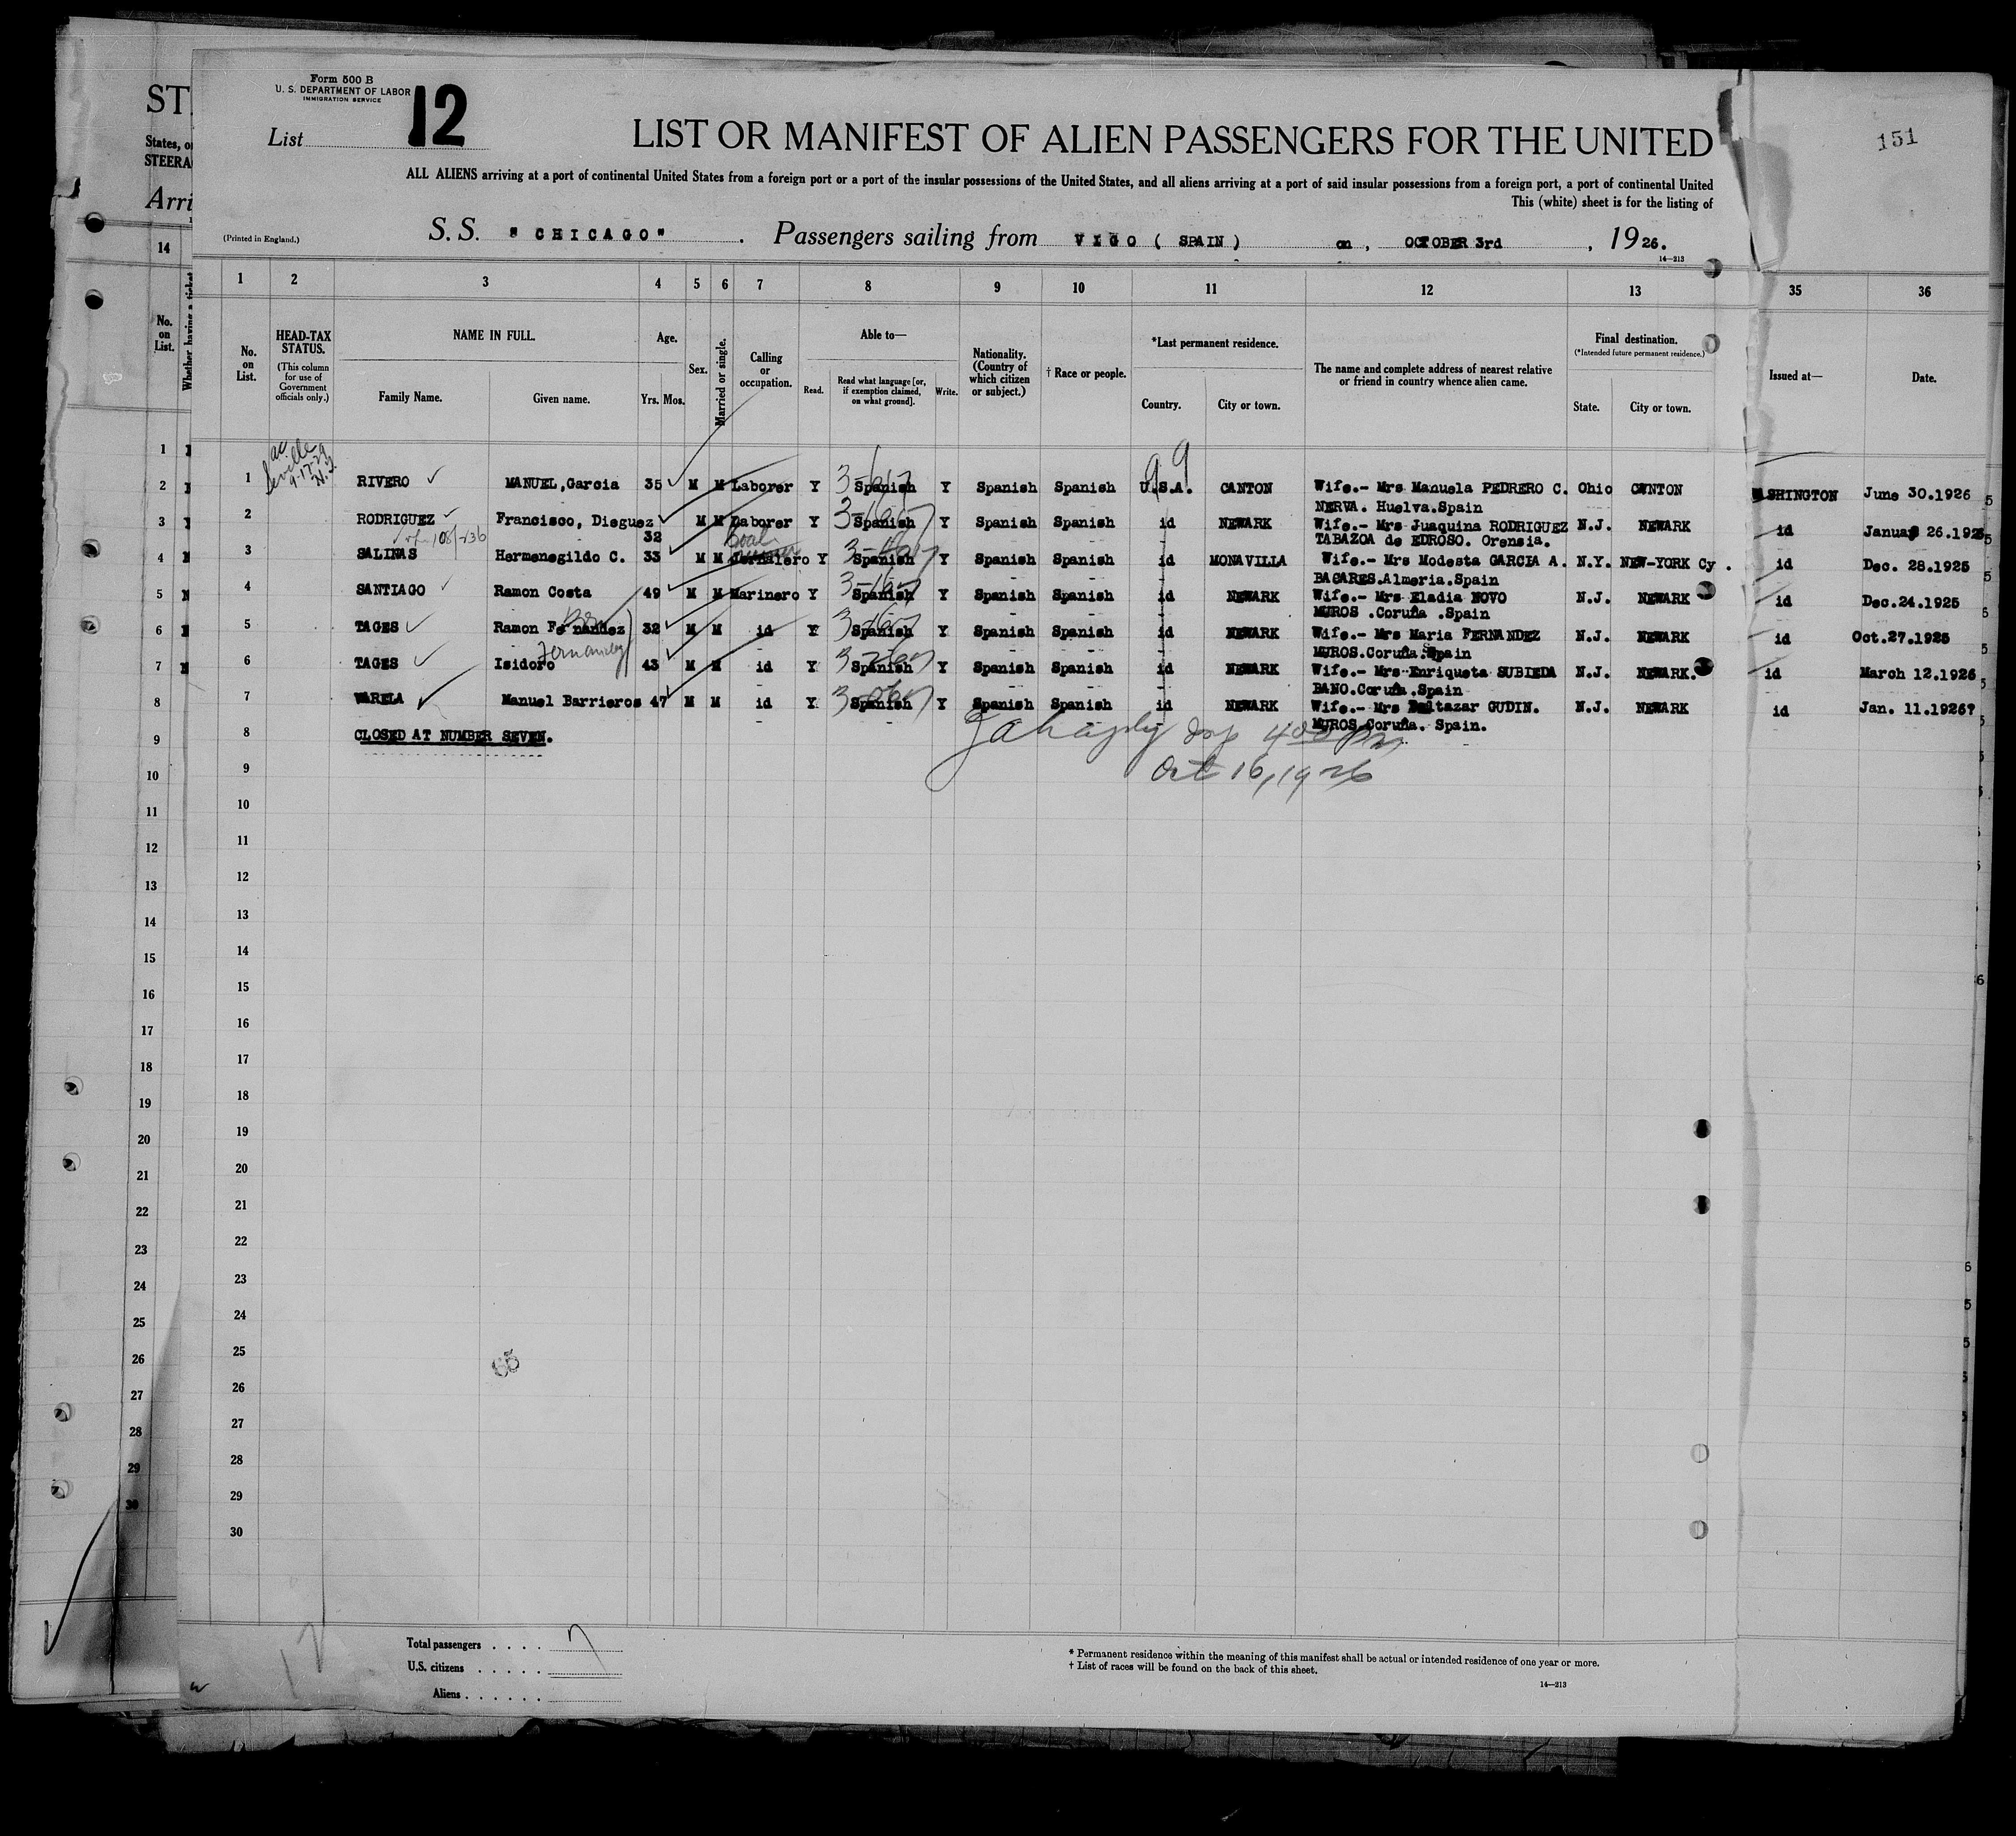 Form 500 B
U. S. DEPARTMENT OF LABOR
IMMIGRATION SERVICE
List 12
151
LIST OR MANIFEST OF ALIEN PASSENGERS FOR THE UNITED
ALL ALIENS arriving at a port of continental United States from a foreign port or a port of the insular possessions of the United States, and all aliens arriving at a port of said insular possessions from a foreign port, a port of continental United
This (white) sheet is for the listing of
(Printed in England.)
S. S. "CHICAGO". Passengers sailing from VIGO ( SPAIN ) on, OCTOBER 3rd, 1926.
14—213
1 2 3 4 5 6 7 8 9 10 11 12 13 35 36
No. on List.
HEAD-TAX STATUS.
(This column for use of Government officials only.)
NAME IN FULL.
Family Name. Given name.
Age.
Yrs. Mos.
Sex.
Married or single.
Calling or occupation.
Able to—
Read. Read what language [or, if exemption claimed, on what ground]. Write.
Nationality. (Country of which citizen or subject.)
† Race or people.
*Last permanent residence.
Country. City or town.
The name and complete address of nearest relative or friend in country whence alien came.
Final destination.
(*Intended future permanent residence.)
State. City or town.
Issued at—
Date.
1 RIVERO MANUEL,Garcia 35 M M Laborer Y Spanish Y Spanish Spanish U.S.A. CANTON Wife.- Mrs Manuela PEDRERO C. Ohio CWNTON WASHINGTON June 30.1926
NERVA. Huelva.Spain
2 RODRIGUEZ Francisco, Dieguez 32 M M Laborer Y Spanish Y Spanish Spanish id NEWARK Wife.- Mrs Juaquina RODRIGUEZ N.J. NEWARK id
TABAZOA de EDROSO. Orensia.
3 SALINAS Hermenegildo C. 33 M M Jornalero Y Spanish Y Spanish Spanish id MONAVILLA Wife.- Mrs Modesta GARCIA A. N.Y. NEW-YORK Cy. id Dec. 28.1925
BACARES.Almeria.Spain
4 SANTIAGO Ramon Costa 49 M M Marinero Y Spanish Y Spanish Spanish id NEWARK Wife.- Mrs Eladia NOVO N.J. NEWARK id Dec.24.1925
MUROS .Coruña .Spain
5 TAGES Ramon Fernandez 32 M M id Y Spanish Y Spanish Spanish id NEWARK Wife.- Mrs Maria FERNANDEZ N.J. NEWARK id Oct.27.1925
MUROS.Coruña.Spain
Fernandez
6 TAGES Isidoro 43 M M id Y Spanish Y Spanish Spanish id NEWARK Wife.- Mrs Enriqueta SUBIEDA N.J. NEWARK. id March 12.1926
BANO.Coruña.Spain
7 VARELA Manuel Barrieros 47 M M id Y Spanish Y Spanish Spanish id NEWARK Wife.- Mrs Baltazar GUDIN. N.J. NEWARK id Jan. 11.1926?
MUROS.Coruña. Spain.
8 CLOSED AT NUMBER SEVEN.
Oct 16, 1926
9
10
11
12
13
14
15
16
17
18
19
20
21
22
23
24
25
26
27
28
29
30
Total passengers . . . . 7
U.S. citizens . . . . . .
Aliens . . . . . .
12
* Permanent residence within the meaning of this manifest shall be actual or intended residence of one year or more.
† List of races will be found on the back of this sheet.
14—213